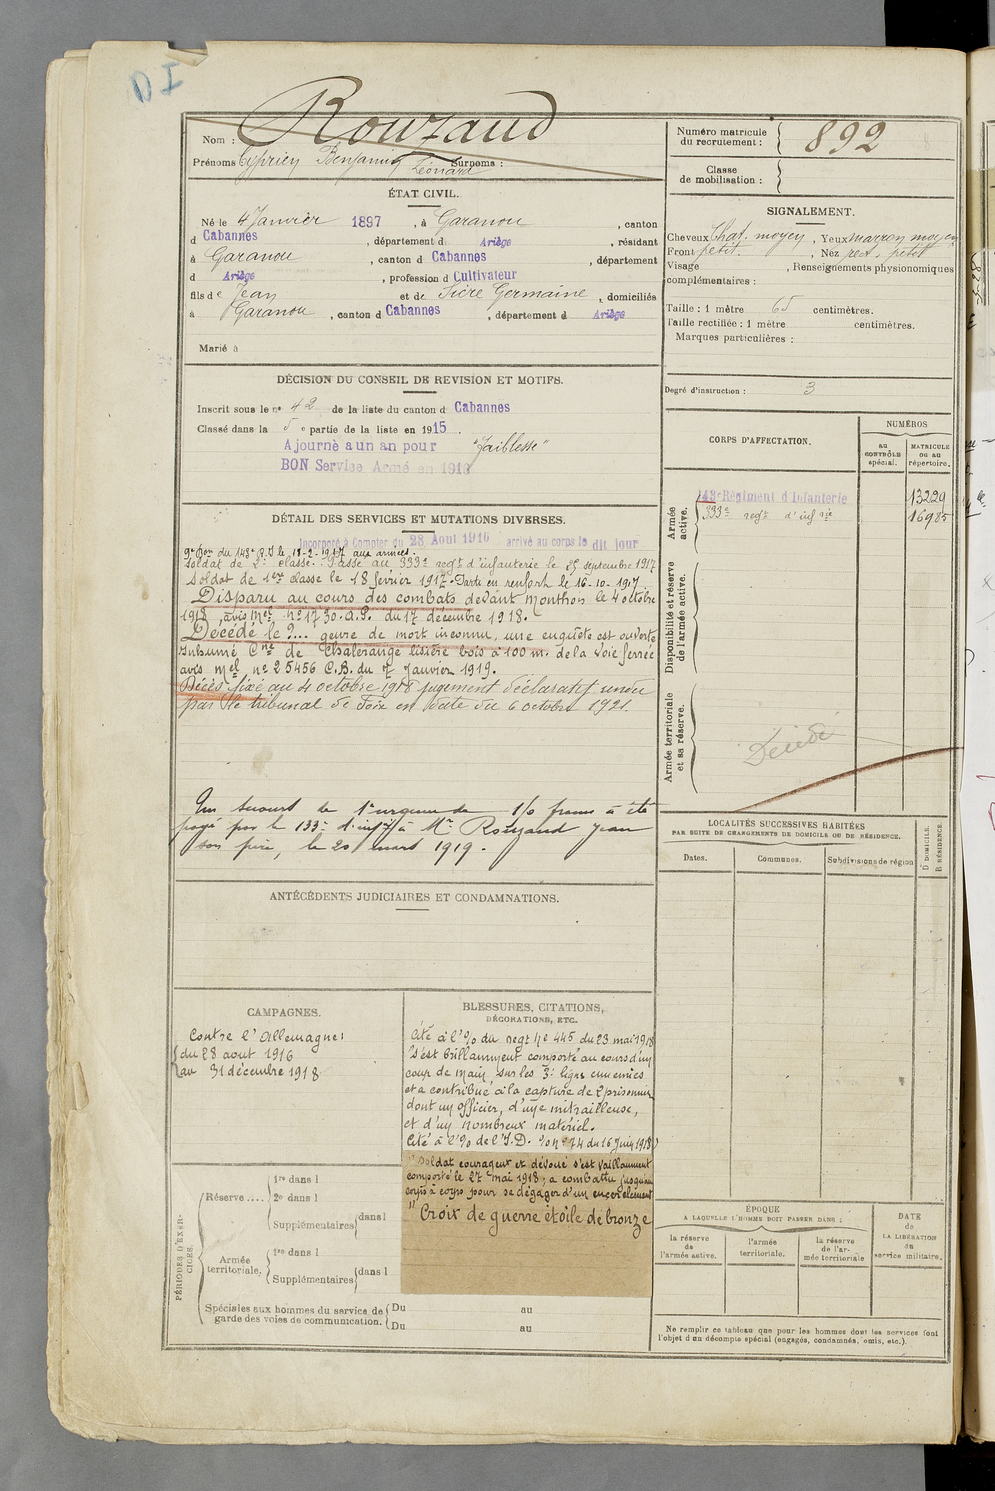 DI
Nom : Rouzaud
Prénoms Cyprien Benjamin Léonard Surnoms :
ÉTAT CIVIL.
Né le 4 Janvier 1897, à Garanou, canton
d Cabannes, département d Ariège, résidant
à Garanou, canton d Cabannes, département
d Ariège, profession d Cultivateur
fils de Jean et de Sicre Germaine, domiciliés
à Garanou, canton d Cabannes, département d Ariège
Marié à
DÉCISION DU CONSEIL DE REVISION ET MOTIFS.
Inscrit sous le nº 42 de la liste du canton d Cabannes
Classé dans la 5 e partie de la liste en 1915.
Ajourné a un an pour "faiblesse"
BON Service Armé en 1916
DÉTAIL DES SERVICES ET MUTATIONS DIVERSES.
Incorporé à Compter du 28 Aout 1916 arrivé au corps le dit jour
du 143e R.I le 18-2-1917 aux armées.
Soldat de 2e classe. Passé au 333e regt d'infanterie le 25 septembre 1917
Soldat de 1ère classe le 18 février 1917. Parti en renfort le 16-10-1917.
Disparu au cours des combats devant Monthois le 4 octobre
1918, avis Mel nº 1730. d.P. du 17 décembre 1918.
Décédé le ?... genre de mort inconnu, une enquête est ouverte
inhumé Cne de Chalerange lisière bois à 100 m. de la voie ferrée
avis Mel nº 25456 C.B. du 7 Janvier 1919.
Décès fixé au 4 octobre 1918 jugement déclaratif rendu
par le tribunal de Foix en date du 6 octobre 1921.
Un secours de 1e urgence de 150 francs a été
payé par le 133e d'infie à Mr Rouzaud Jean
son père, le 20 mars 1919.
ANTÉCÉDENTS JUDICIAIRES ET CONDAMNATIONS.
CAMPAGNES.
Contre l'Allemagne:
du 28 aout 1916
au 31 décembre 1918
BLESSURES, CITATIONS,
DÉCORATIONS, ETC.
Cité à l'% du regt Nº 445 du 23 mai 1918
"S'est brillamment comporté au cours d'un
coup de main sur les 3e ligne ennemies
et a contribué à la capture de 2 prisonniers
dont un officier, d'une mitrailleuse,
et d'un nombreux matériel.
Cité à l'% de l'I.D. % nº 74 du 16 Juin 1918
"Soldat courageux et dévoué s'est vaillamment
comporté le 27 mai 1918; a combattu jusqu'au
corps à corps pour se dégager d'un encerclement
" Croix de guerre étoile de bronze
PÉRIODES D'EXERCICES.
Réserve ....
1re dans l
2e dans l
Supplémentaires dans l
Armée territoriale.
1re dans l
Supplémentaires dans l
Spéciales aux hommes du service de garde des voies de communication.
Du au
Du au
Numéro matricule du recrutement : 892
Classe de mobilisation :
SIGNALEMENT.
Cheveux Chat. moyen, Yeux marron moyen
Front petit., Nez rect. petit
Visage , Renseignements physionomiques
complémentaires :
Taille : 1 mètre 65 centimètres.
Taille rectifiée : 1 mètre centimètres.
Marques particulières :
Degré d'instruction : 3
CORPS D'AFFECTATION.
NUMÉROS
au CONTRÔLE spécial.
MATRICULE ou au répertoire.
Armée active.
143e Régiment d'Infanterie 13229
333e regt d'infie 16985
Disponibilité et réserve de l'armée active.
Armée territoriale et sa réserve.
Décédé
LOCALITÉS SUCCESSIVES HABITÉES
PAR SUITE DE CHANGEMENTS DE DOMICILE OU DE RÉSIDENCE.
D DOMICILE.
R RÉSIDENCE.
Dates.
Communes.
Subdivisions de région
ÉPOQUE
A LAQUELLE L'HOMME DOIT PASSER DANS :
la réserve de l'armée active.
l'armée territoriale.
la réserve de l'armée territoriale
DATE de LA LIBÉRATION du service militaire.
Ne remplir ce tableau que pour les hommes dont les services font
l'objet d'un décompte spécial (engagés, condamnés, omis, etc.).